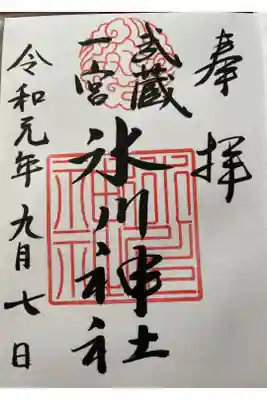 奉拝
武蔵
一宮
氷川神社
令和元年九月七日